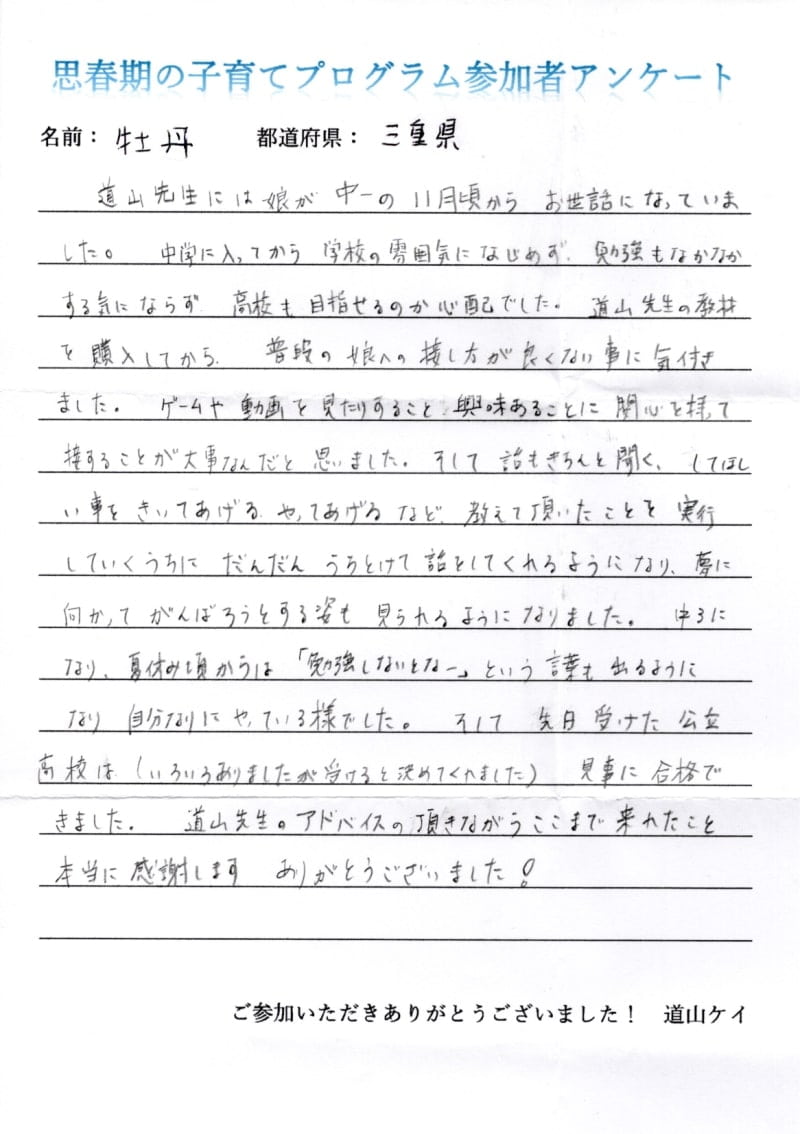 思春期の子育てプログラム参加者アンケート
名前： 牡丹 都道府県： 三重県
道山先生には娘が 中一の 11月頃から お世話になっていま
した。 中学に入ってから 学校の雰囲気になじめず、勉強もなかなか
する気にならず 高校も目指せるのか心配でした。 道山先生の教材
を購入してから、 普段の娘への接し方が良くない事に気付き
ました。 ゲームや動画を見たりすること、興味あることに関心を持って
接することが大事なんだと思いました。そして話もきちんと聞く、してほし
い事をきいてあげる、やってあげるなど、教えて頂いたことを実行
していくうちに だんだん うちとけて話をしてくれるようになり、夢に
向かって がんばろうとする姿も 見られるようになりました。 中3に
なり、夏休み頃からは「勉強しないとなー」という言葉も出るように
なり 自分なりにやっている様でした。 そして 先日受けた公立
高校は（いろいろありましたが受けると決めてくれました） 見事に合格で
きました。 道山先生のアドバイスの頂きながらここまで来れたこと
本当に感謝します ありがとうございました！
ご参加いただきありがとうございました！ 道山ケイ